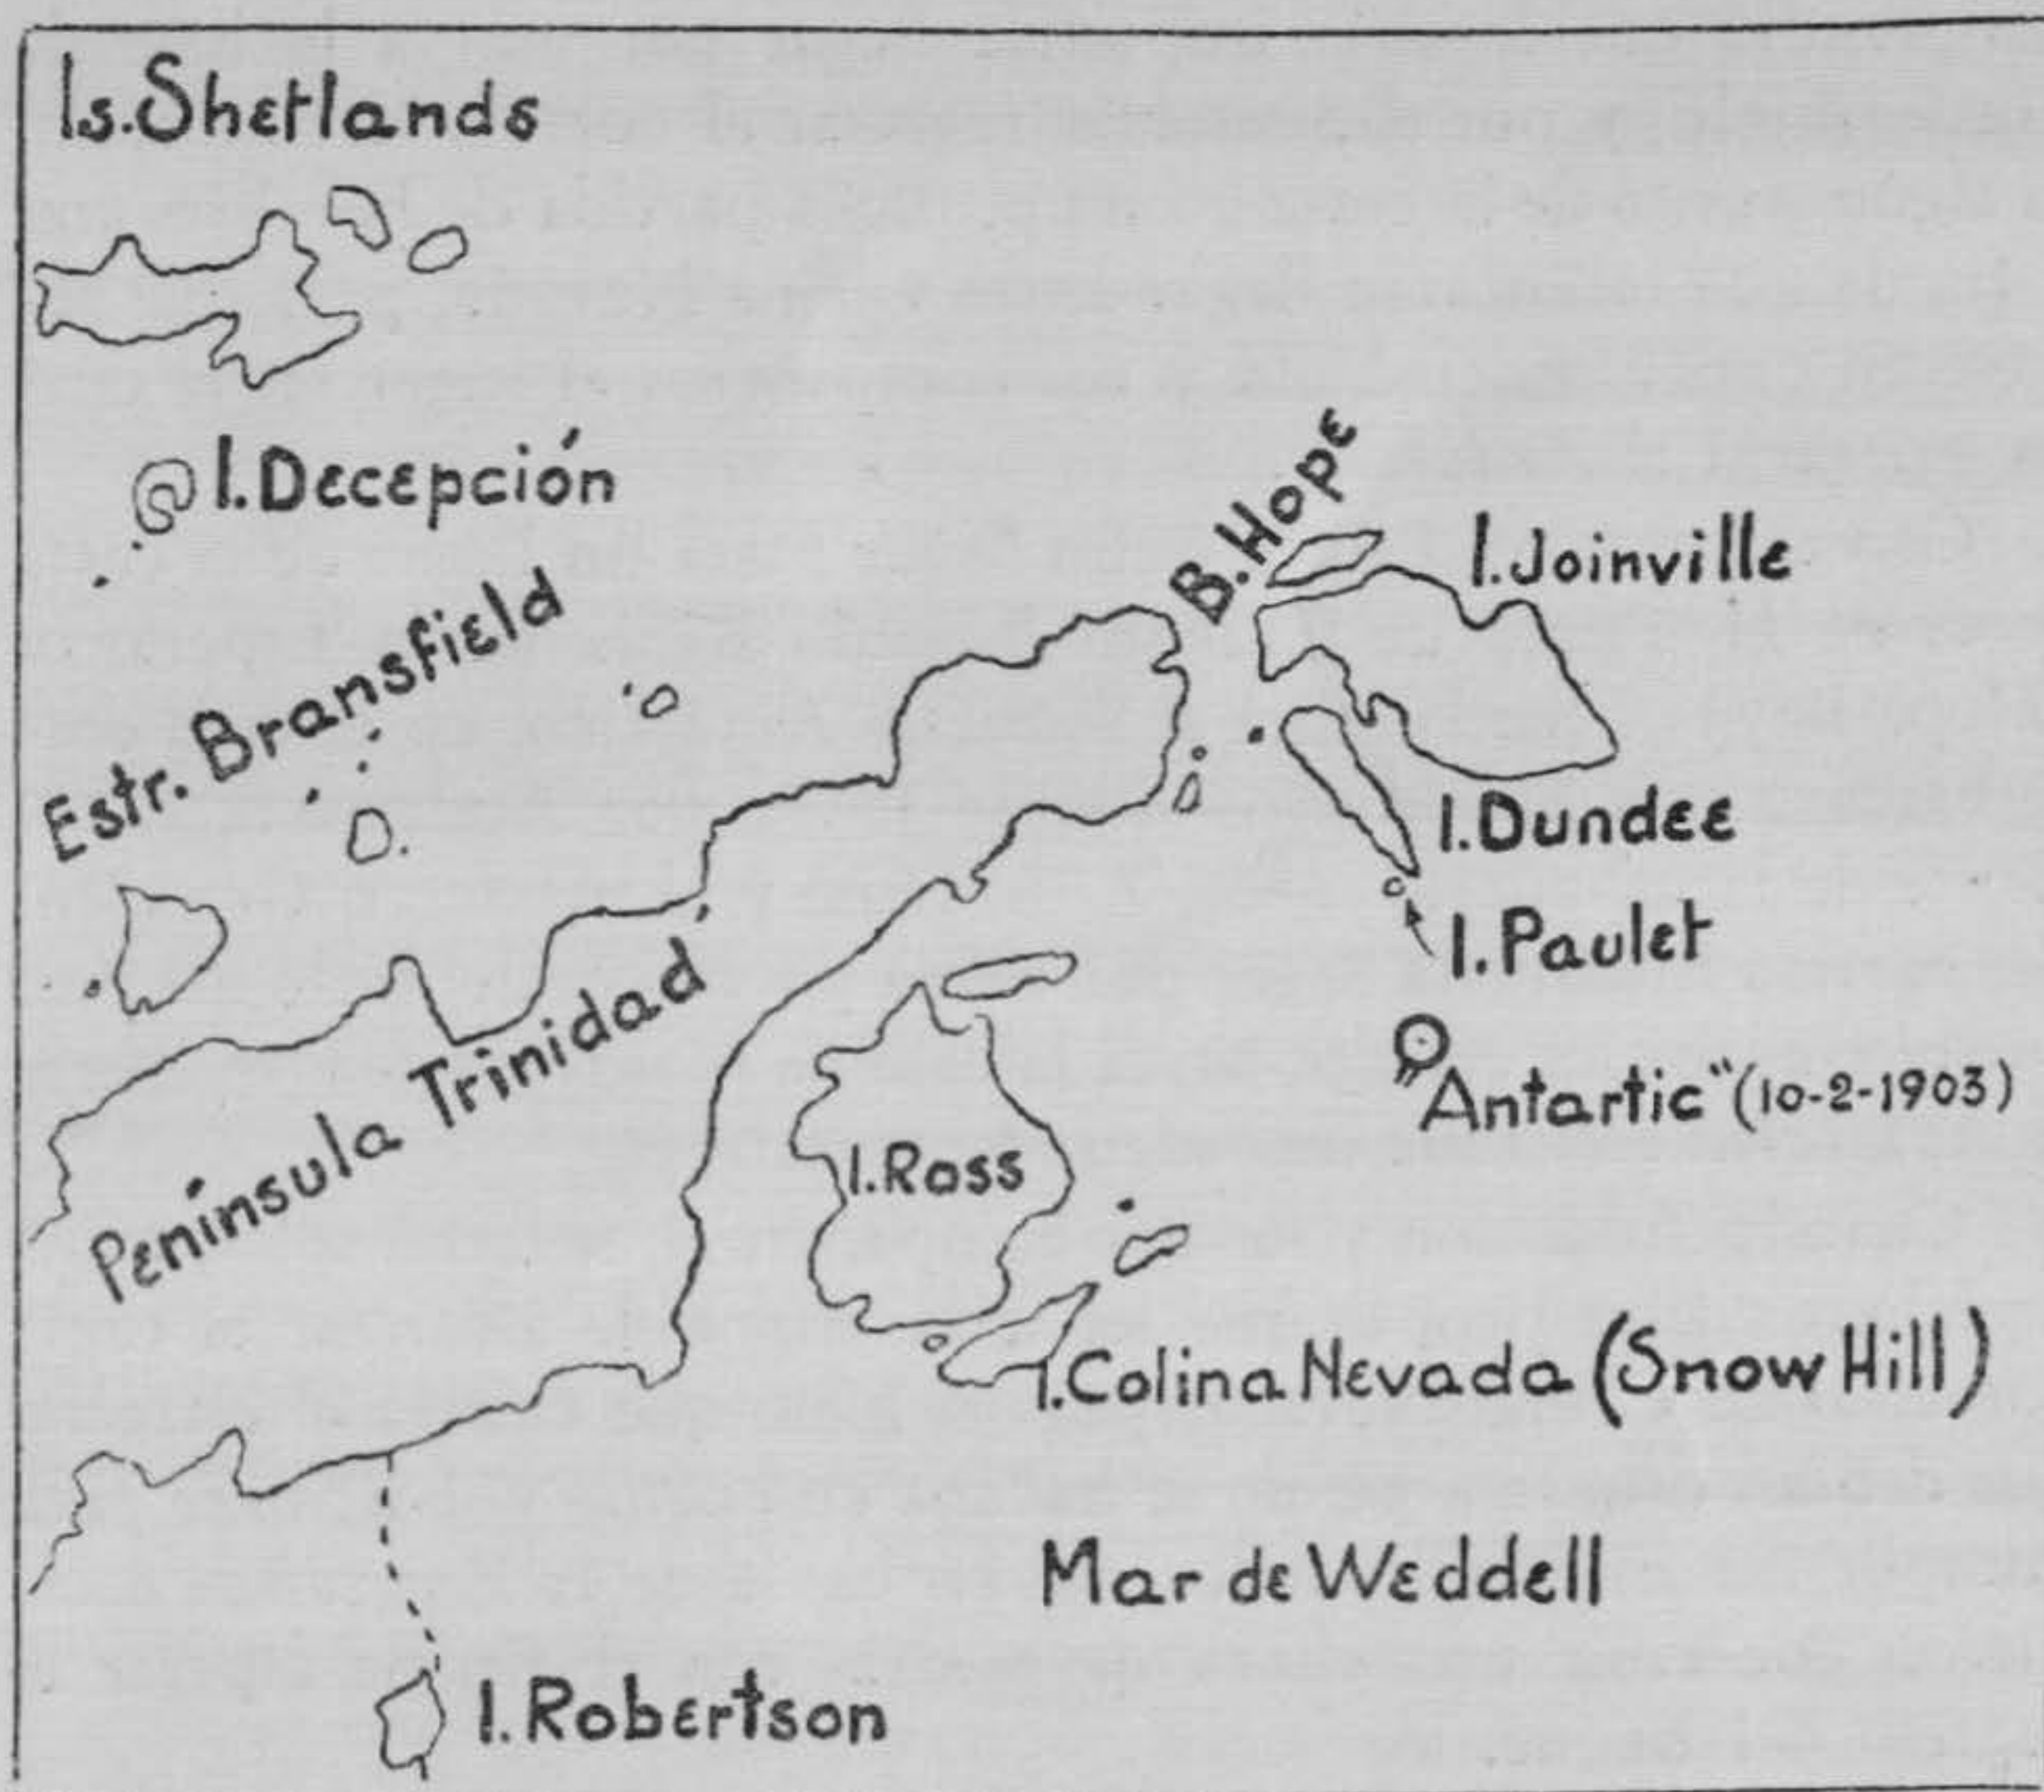 Is.Shetlands
I.Decepción
B.Hope
I.Joinville
Estr. Bransfield
I.Dundee
I.Paulet
Península Trinidad
"Antartic" (10-2-1903)
I.Ross
I.Colina Nevada (Snow Hill)
Mar de Weddell
I.Robertson